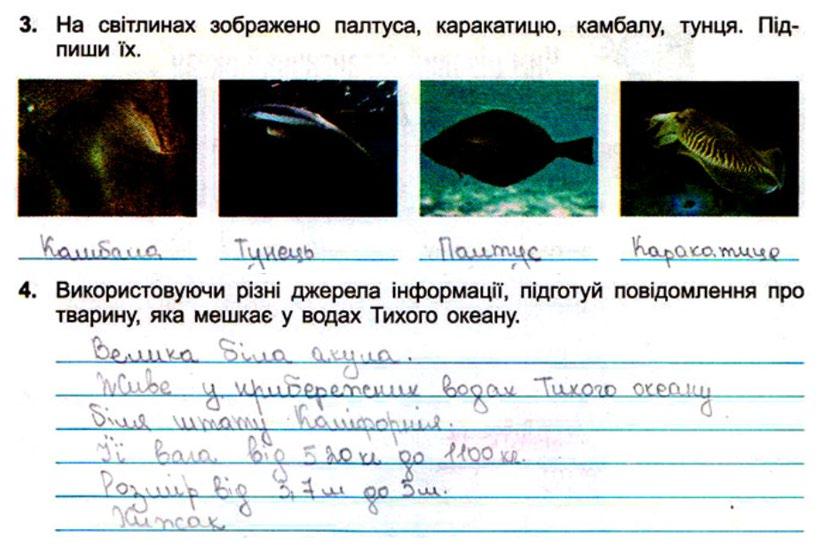 3. На світлинах зображено палтуса, каракатицю, камбалу, тунця. Під-
пиши їх.
Камбала Тунець Палтус Каракатиця
4. Використовуючи різні джерела інформації, підготуй повідомлення про
тварину, яка мешкає у водах Тихого океану.
Велика біла акула.
Живе у прибережних водах Тихого океану
біля штату Каліфорнія.
Її вага від 520 кг до 1100 кг.
Розмір від 3,7 м до 5 м.
Хижак